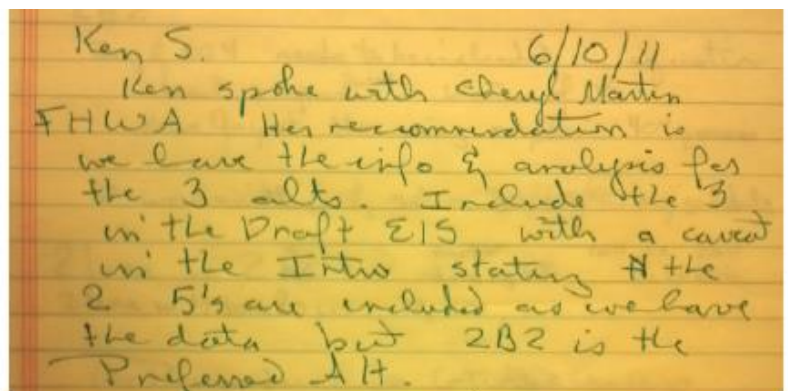 Ken S. 6/10/11
Ken spoke with Cheryl Martin
FHWA Her recommendation is
we have the info & analysis for
the 3 alts. Include the 3
in the Draft EIS with a caveat
in the Intro stating the
2 5's are included as we have
the data but 2B2 is the
Preferred Alt.